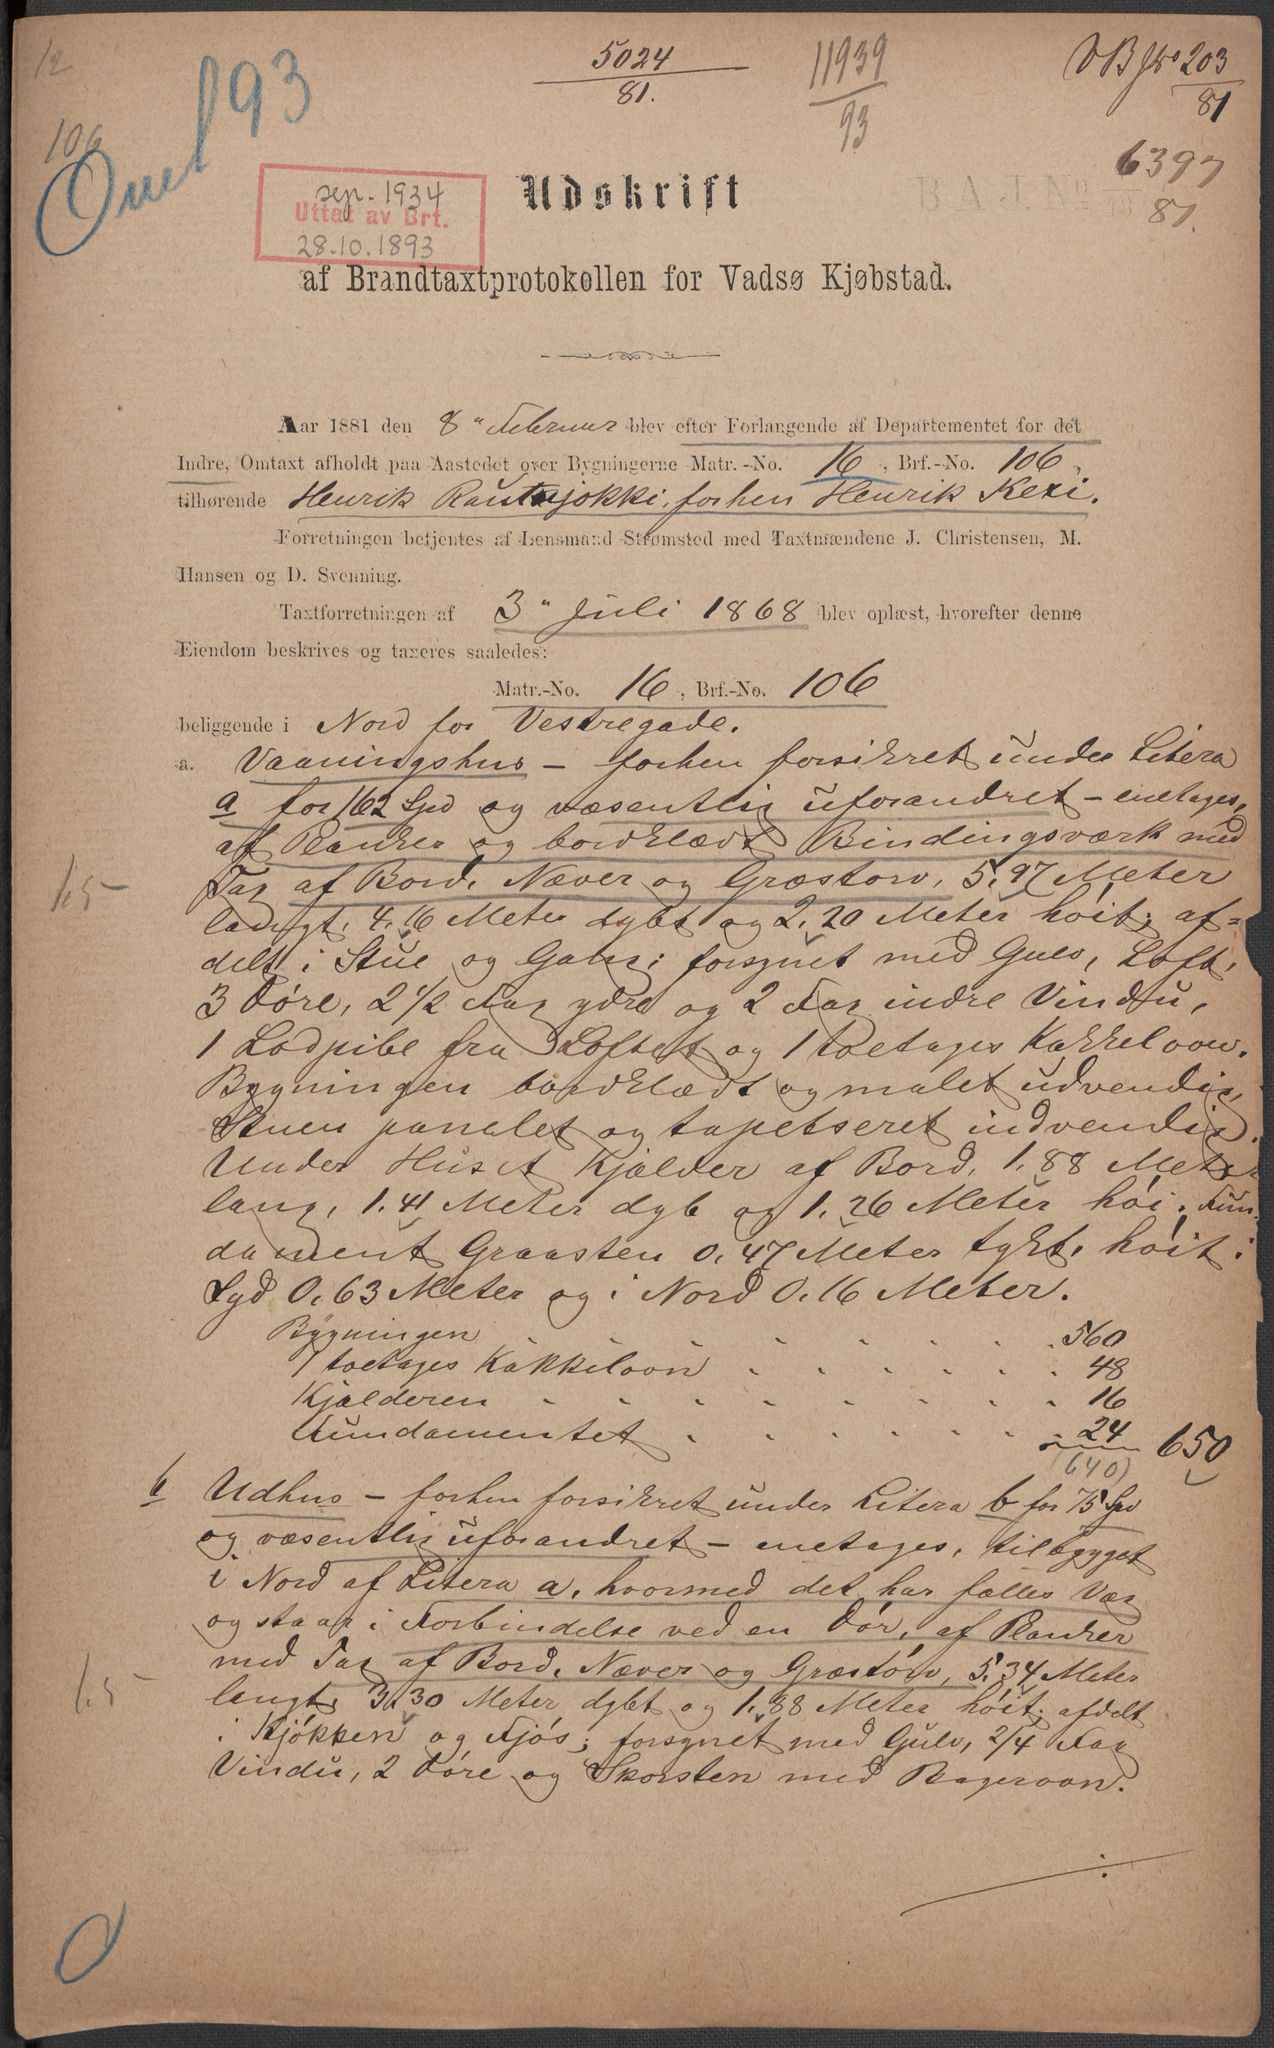 12
Omt 93
106
5024
81.
11939
93
VB JNo 203
81
6397
81.
B A J. No
sep. 1934
Uttatt av Brt.
28.10.1893
Udskrift
af Brandtaxtprotokollen for Vadsø Kjøbstad.
Aar 1881 den 8de Februar blev efter Forlangende af Departementet for det
Indre, Omtaxt afholdt paa Aastedet over Bygningerne Matr.-No. 16, Brf.-No. 106,
tilhørende Henrik Rautajokki, forhen Henrik Kexi.
Forretningen betjentes af Lensmand Strømsted med Taxtmændene J. Christensen, M.
Hansen og D. Svenning.
Taxtforretningen af 3de Juli 1868 blev oplæst, hvorefter denne
Eiendom beskrives og taxeres saaledes:
Matr.-No. 16, Brf.-No. 106
beliggende i Nord for Vestregade.
a. Vaaningshus – forhen forsikret under Litera
a for 162 Spd og væsentlig uforandret – enetages,
af Planker og bordklædt Bindingsværk med
Tag af Bord, Næver og Græstorv, 5,97 Meter
1.5
langt, 4,16 Meter dybt og 2,20 Meter høit; af-
delt i Stue og Gang; forsynet med Gulv, Loft,
3 Døre, 2 1/2 Fag ydre og 2 Fag indre Vindu,
1 Lodpibe fra Loftet og 1 toetages Kakkelovn.
Bygningen bordklædt og malet udvendig,
Stuen panelet og tapetseret indvendig.
Under Huset Kjælder af Bord, 1,88 Meter
lang, 1,41 Meter dyb og 1,26 Meter høi. Fun-
dament Graasten 0,47 Meter tykt, høit i
Syd 0,63 Meter og i Nord 0,16 Meter.
Bygningen . . . . . . 560
1 toetages Kakkelovn . . . . . . 48
Kjælderen . . . . . . . 16
Fundamentet . . . . . . 24 650
(640)
b Udhus – forhen forsikret under Litera b for 75 Spd
og væsentlig uforandret – enetages, tilbygget
i Nord af Litera a, hvormed det har fælles Væg
og staar i Forbindelse ved en Dør, af Planker
med Tag af Bord, Næver og Græstorv, 5,34 Meter
1.5
langt, 3,30 Meter dybt og 1,88 Meter høit; afdelt
i Kjøkken og Fjøs; forsynet med Gulv, 2/4 Fag
Vindu, 2 Døre og Skorsten med Bagerovn.